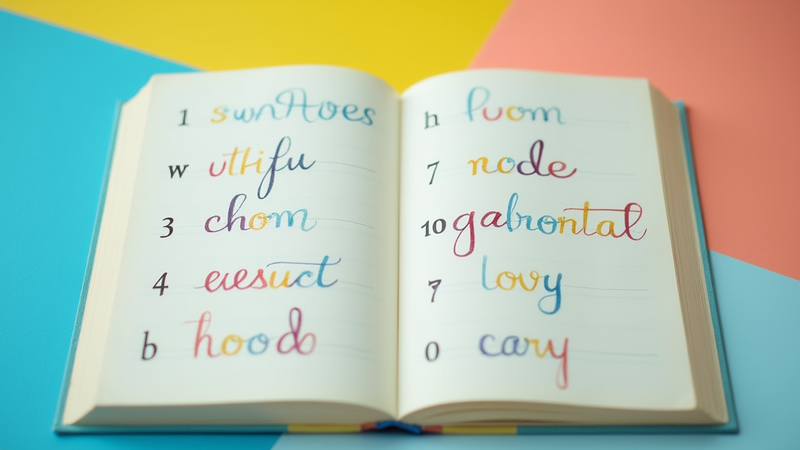 1 swnHoes
w utlifu
3 chom
4 eusuct
b hood
h fuom
7 node
10 gabrontal
7 lovy
0 cary